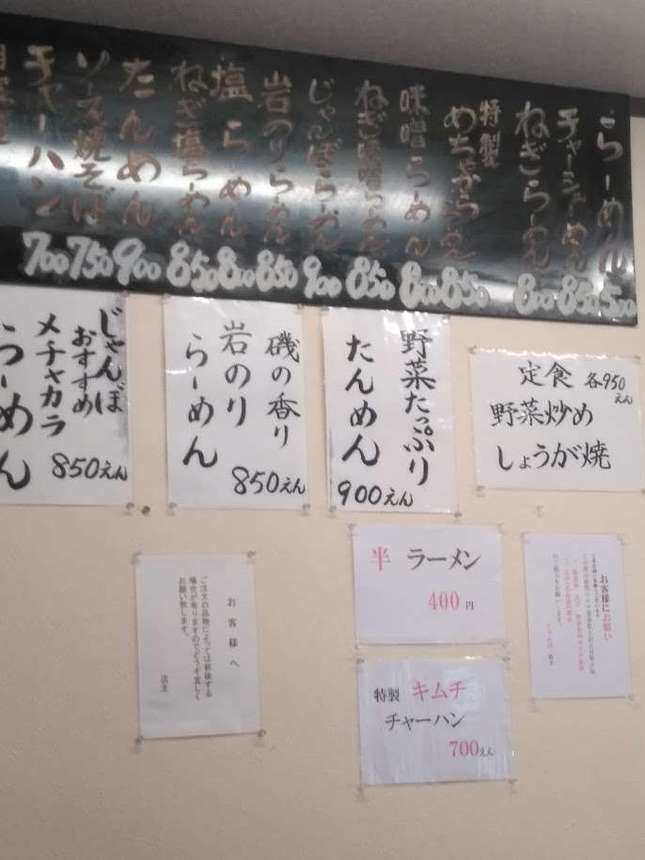 らーめん 500
チャーシューめん 850
ねぎらーめん 800
特製
めちゃからーめん 850
味噌らーめん 800
ねぎ味噌らーめん 850
じゃんぼらーめん 900
岩のりらーめん 850
塩らーめん 800
ねぎ塩らーめん 850
たんめん 900
ソース焼そば 750
チャーハン 700
じゃんぼ
おすすめ
メチャカラ
らーめん
850えん
磯の香り
岩のり
らーめん
850えん
野菜たっぷり
たんめん
900えん
定食 各950えん
野菜炒め
しょうが焼
半 ラーメン
400円
特製 キムチ
チャーハン
700えん
お客様へ
ご注文の品物によっては前後する
場合が有りますのでどうぞ宜しく
お願い致します。
店主
お客様にお願い
店主